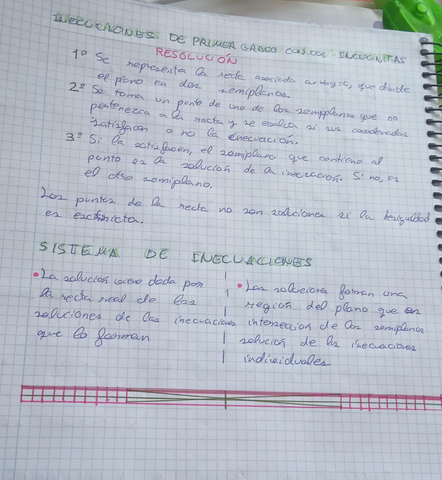 INECUACIONES DE PRIMER GRADO CON DOS INCOGNITAS
RESOLUCIÓN
1º Se representa la recta asociada ax+by=c, que divide
el plano en dos semiplanos.
2º Se toma un punto de uno de los semiplanos que no
pertenezca a la recta y se evalúa si sus coordenadas
satisfacen o no la inecuación.
3º Si la satisfacen, el semiplano que contiene al
punto es la solución de la inecuación. Si no, es
el otro semiplano.
Los puntos de la recta no son soluciones si la desigualdad
es estricta.
SISTEMA DE INECUACIONES
• La solución viene dada por
la recta real de las
soluciones de las inecuaciones
que lo forman
• Las soluciones forman una
región del plano que es
intersección de los semiplanos
solución de las inecuaciones
individuales